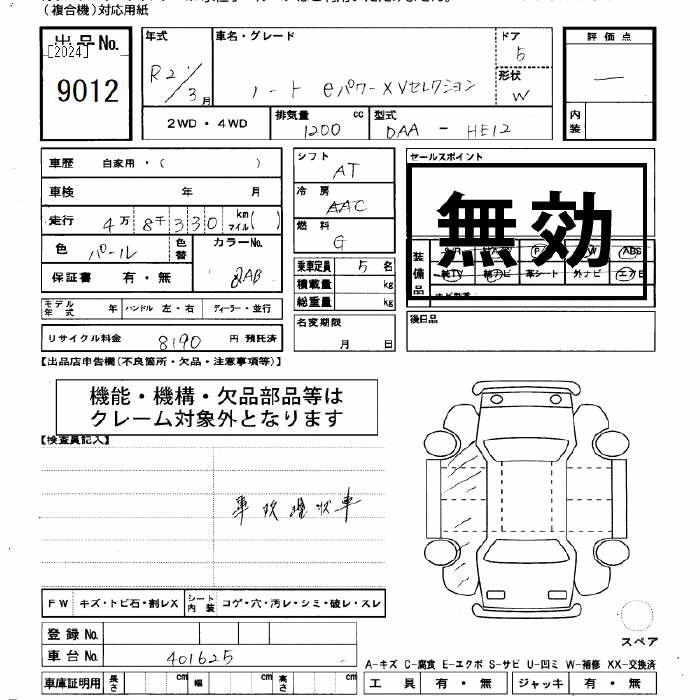 (複合機)対応用紙
出品No.
[2024]
9012
年式
R2/3月
車名・グレード
ノート eパワーXVセレクション
ドア
5
形状
W
評価点
—
内装
2WD・4WD
排気量 cc
1200
型式
DAA - HE12
車歴 自家用・( )
車検 年 月
走行 4万8千330 km マイル( )
色 パール 色替 カラーNo. QAB
保証書 有・無
モデル年式 年 ハンドル 左・右 ディーラー・並行
リサイクル料金 8190 円 預託済
シフト
AT
冷房
AAC
燃料
G
乗車定員 5 名
積載量 kg
総重量 kg
名変期限
月 日
セールスポイント
無効
装備品
ABS
純TV 純ナビ 革シート 外ナビ エアB
後日品
【出品店申告欄(不良箇所・欠品・注意事項等)】
機能・機構・欠品部品等は
クレーム対象外となります
【検査員記入】
FW キズ・トビ石・割レX シート内装 コゲ・穴・汚レ・シミ・破レ・スレ
登録No.
車台No. 401625
車庫証明用 長さ cm 幅 cm 高さ cm
スペア
A-キズ C-腐食 E-エクボ S-サビ U-凹ミ W-補修 XX-交換済
工具 有・無 ジャッキ 有・無